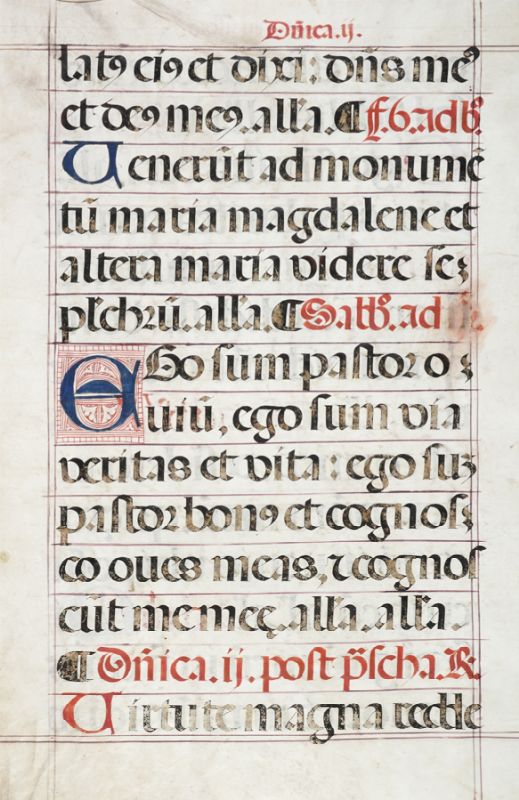 Dn̄ica.ij.
latꝰ eiꝰ et dixi: dn̄s meꝰ
et deꝰ meꝰ. all'a. ¶ f.6. ad b̄.
Uenerūt ad monumē
tū maria magdalene et
altera maria videre se
pl'chꝛū. all'a. ¶ Sabb̄. ad
EGo sum pastoꝛ o
uiū, ego sum via
veritas et vita: ego suꝫ
pastoꝛ bonꝰ et cognos
co oues meas, ⁊ cognos
cūt me meę. all'a. all'a.
¶ Dn̄ica. ij. post p̄scha. R̄.
Uirtute magna redde